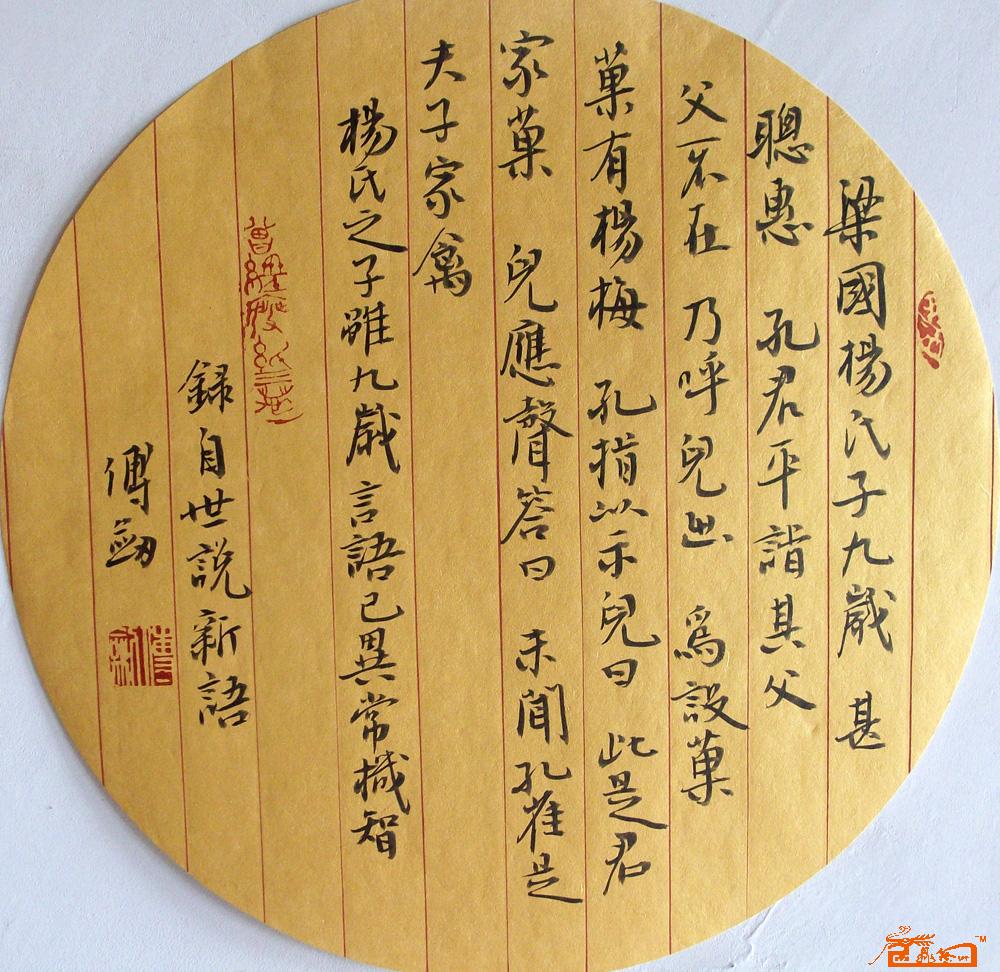 梁國楊氏子九歲 甚
聰惠 孔君平詣其父
父不在 乃呼兒出 爲設菓
菓有楊梅 孔指以示兒曰 此是君
家菓 兒應聲答曰 未聞孔雀是
夫子家禽
楊氏之子雖九歲言語已異常機智
錄自世說新語
傅劍